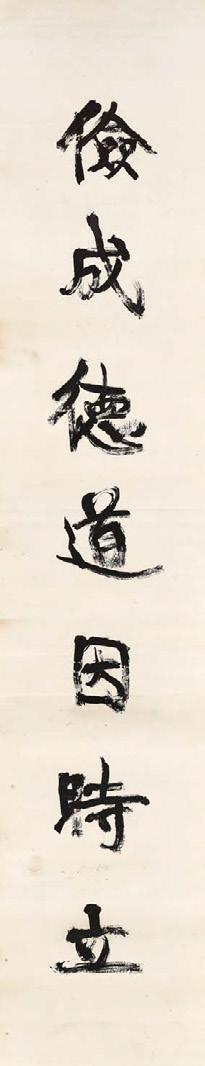 儉成德道因時立